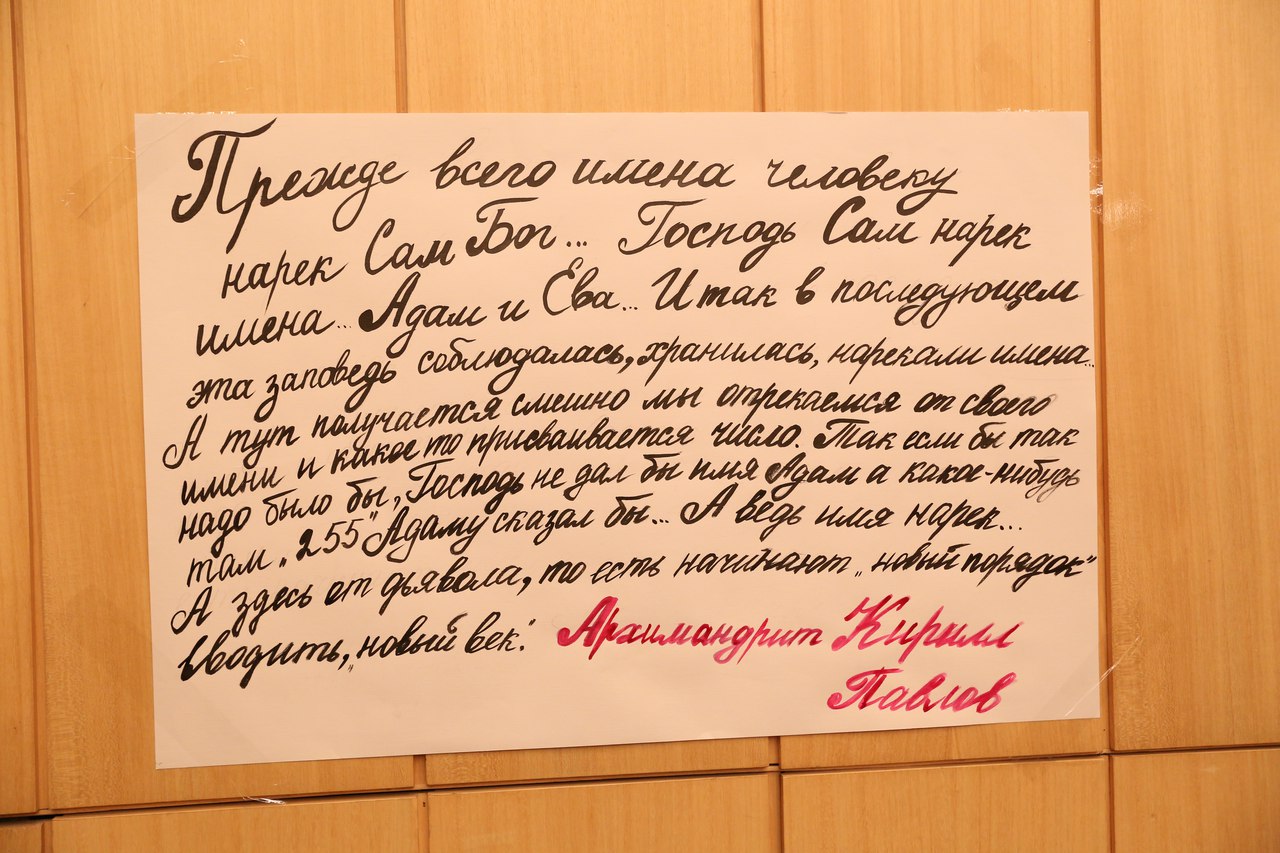 Прежде всего имена человеку
нарек Сам Бог... Господь Сам нарек
имена... Адам и Ева... И так в последующем
эта заповедь соблюдалась, хранилась, нарекали имена...
А тут получается смешно мы отрекаемся от своего
имени и какое то присваивается число. Так если бы так
надо было бы, Господь не дал бы имя Адам а какое-нибудь
там „255" Адаму сказал бы... А ведь имя нарек...
А здесь от дьявола, то есть начинают „новый порядок"
вводить, „новый век".
Архимандрит Кирилл
Павлов